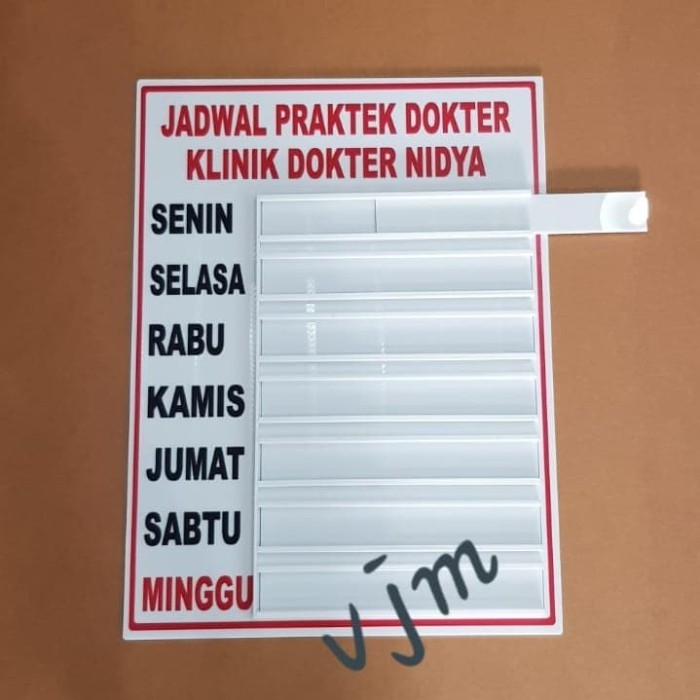 JADWAL PRAKTEK DOKTER
KLINIK DOKTER NIDYA
SENIN
SELASA
RABU
KAMIS
JUMAT
SABTU
MINGGU
vjm